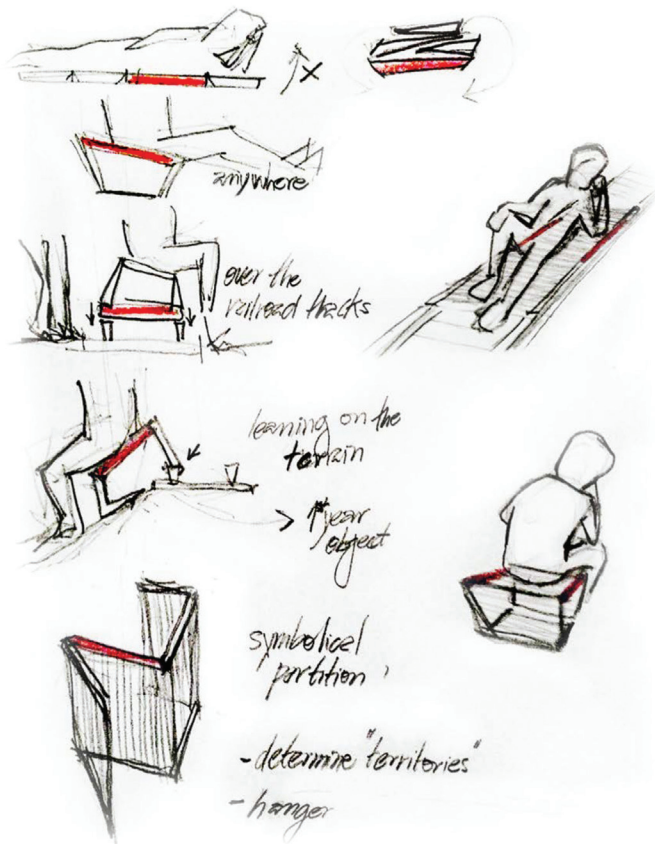 anywhere
over the
railroad tracks
leaning on the
terrain
> 1st year
object
symbolical
partition
- determine "territories"
- hanger